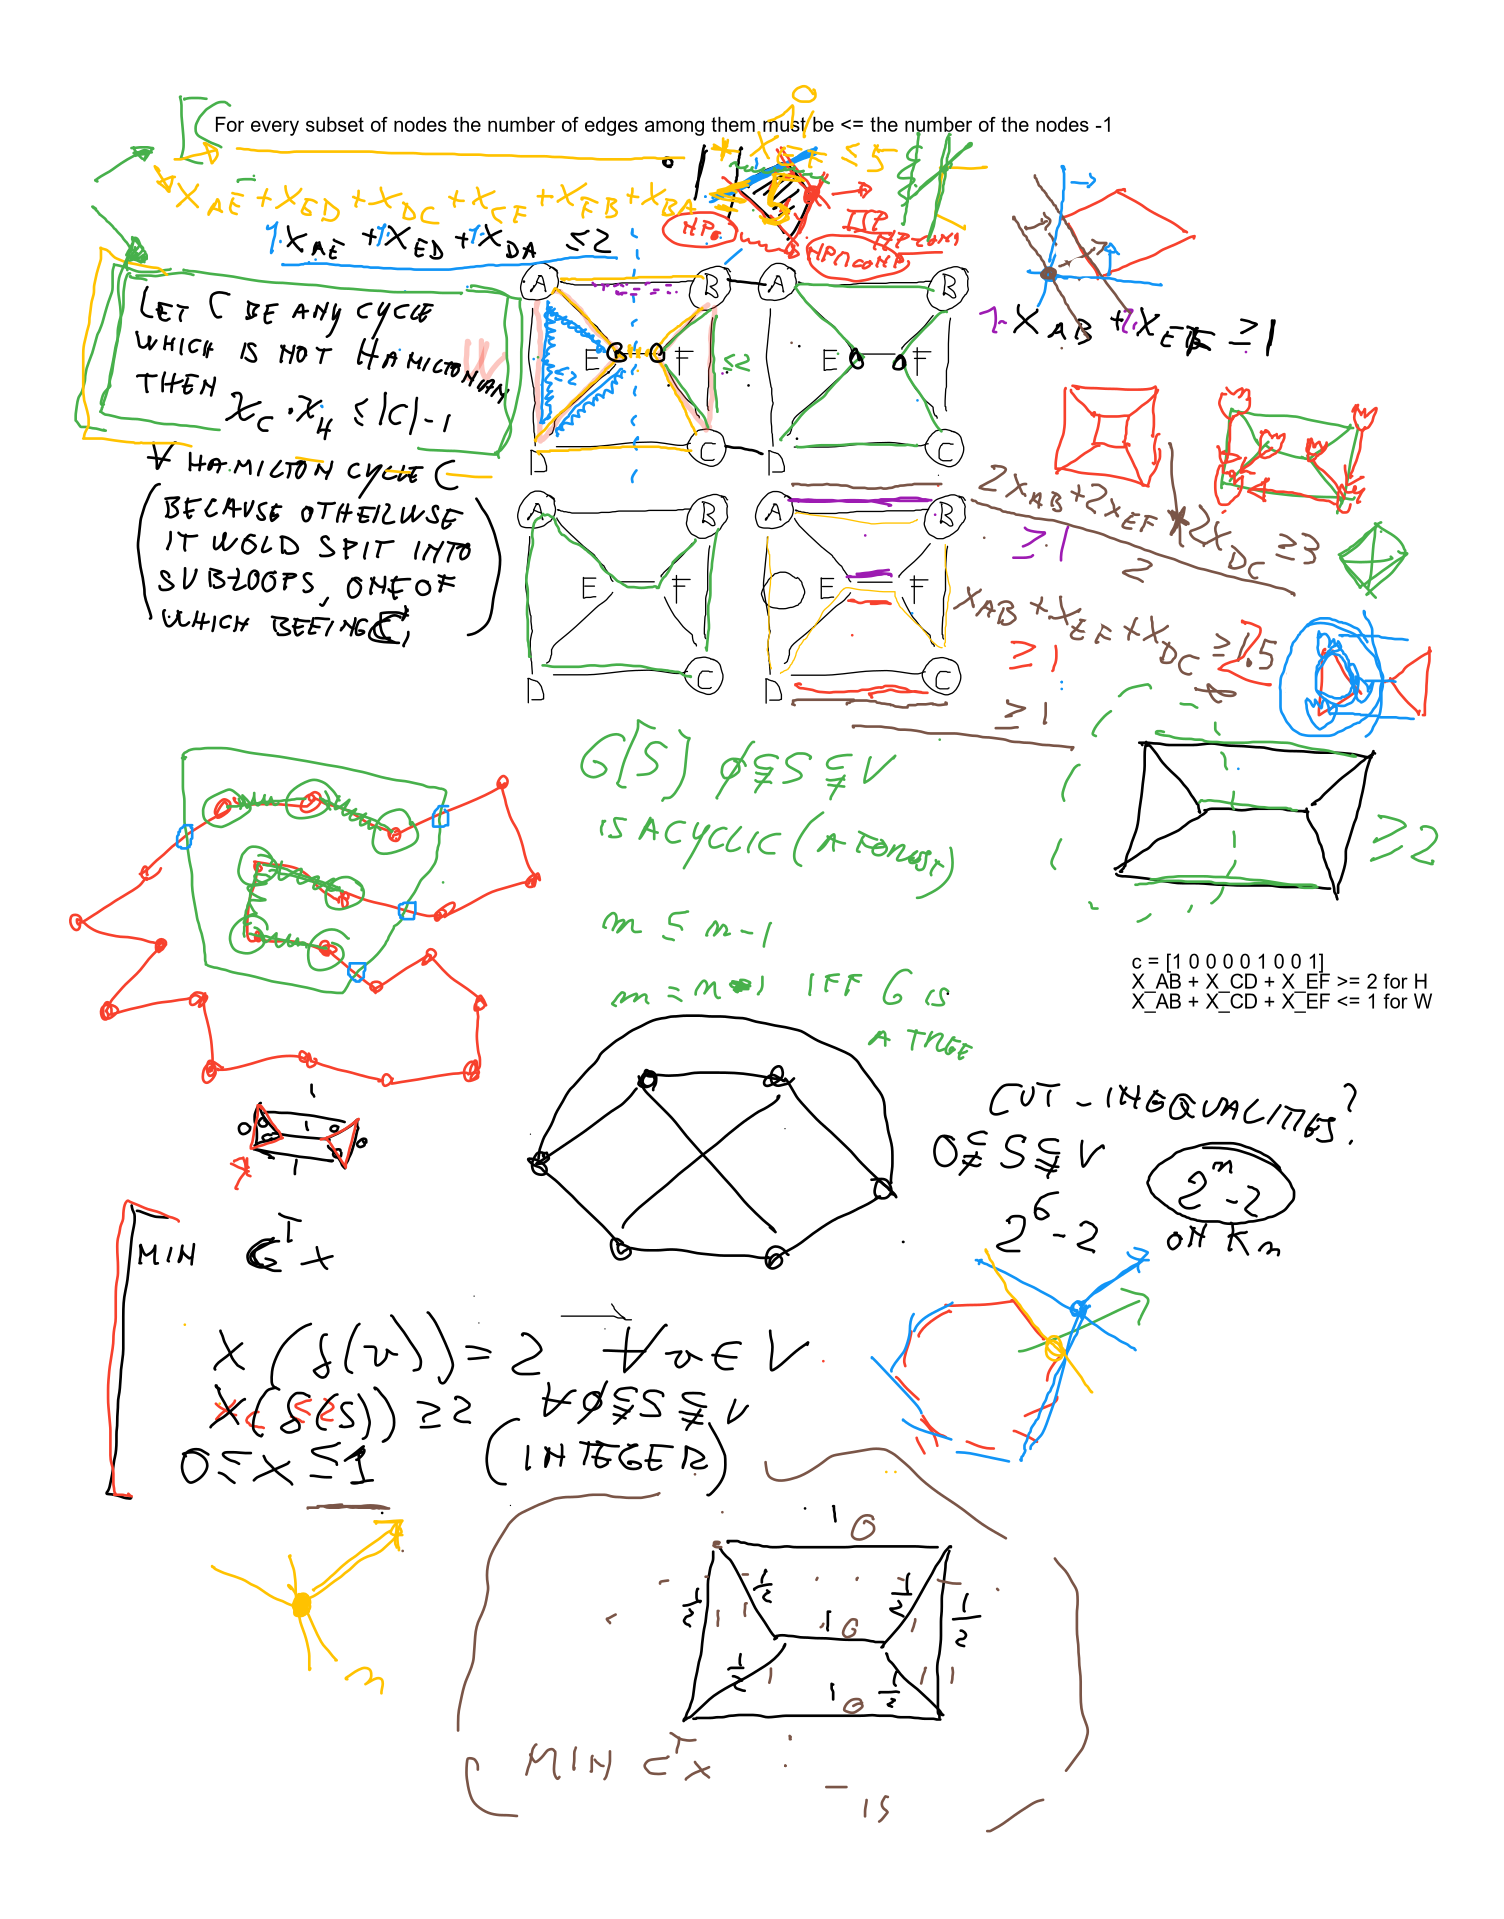 For every subset of nodes the number of edges among them must be <= the number of the nodes -1
X_EF ≤ 5
X_AE + X_ED + X_DC + X_CF + X_FB + X_BA ≤ 5
1·X_AE + 1·X_ED + 1·X_DA ≤ 2
LET C BE ANY CYCLE
WHICH IS NOT HAMILTONIAN
THEN
X_C · X_H ≤ |C| - 1
∀ HAMILTON CYCLE C
(BECAUSE OTHERWISE
IT WOLD SPIT INTO
SUBLOOPS, ONE OF
WHICH BEEING C)
A B E F D C
≤2
≤2
A B E F D C
A B E F D C
A B E F D C
1·X_AB + 1·X_EF ≥ 1
2X_AB + 2X_EF + 2X_DC ≥ 3
2
≥ 1
X_AB + X_EF + X_DC ≥ 1.5
2
≥ 1
≥ 1
G[S] ∅⊊S⊊V
IS ACYCLIC (A FOREST)
m ≤ n - 1
m = n - 1 IFF G IS
A TREE
≥ 2
c = [1 0 0 0 0 1 0 0 1]
X_AB + X_CD + X_EF >= 2 for H
X_AB + X_CD + X_EF <= 1 for W
CUT - INEQUALITIES?
∅⊊S⊊V
2^6 - 2
2^n - 2
ON K_n
MIN C^T X
X(δ(v)) = 2 ∀ v ∈ V
X(δ(S)) ≥ 2 ∀ ∅⊊S⊊V
0 ≤ X ≤ 1 (INTEGER)
n
1 0
1/2 1/2 1/2 1/2
1 0
1/2 1 0 1/2
MIN C^T X